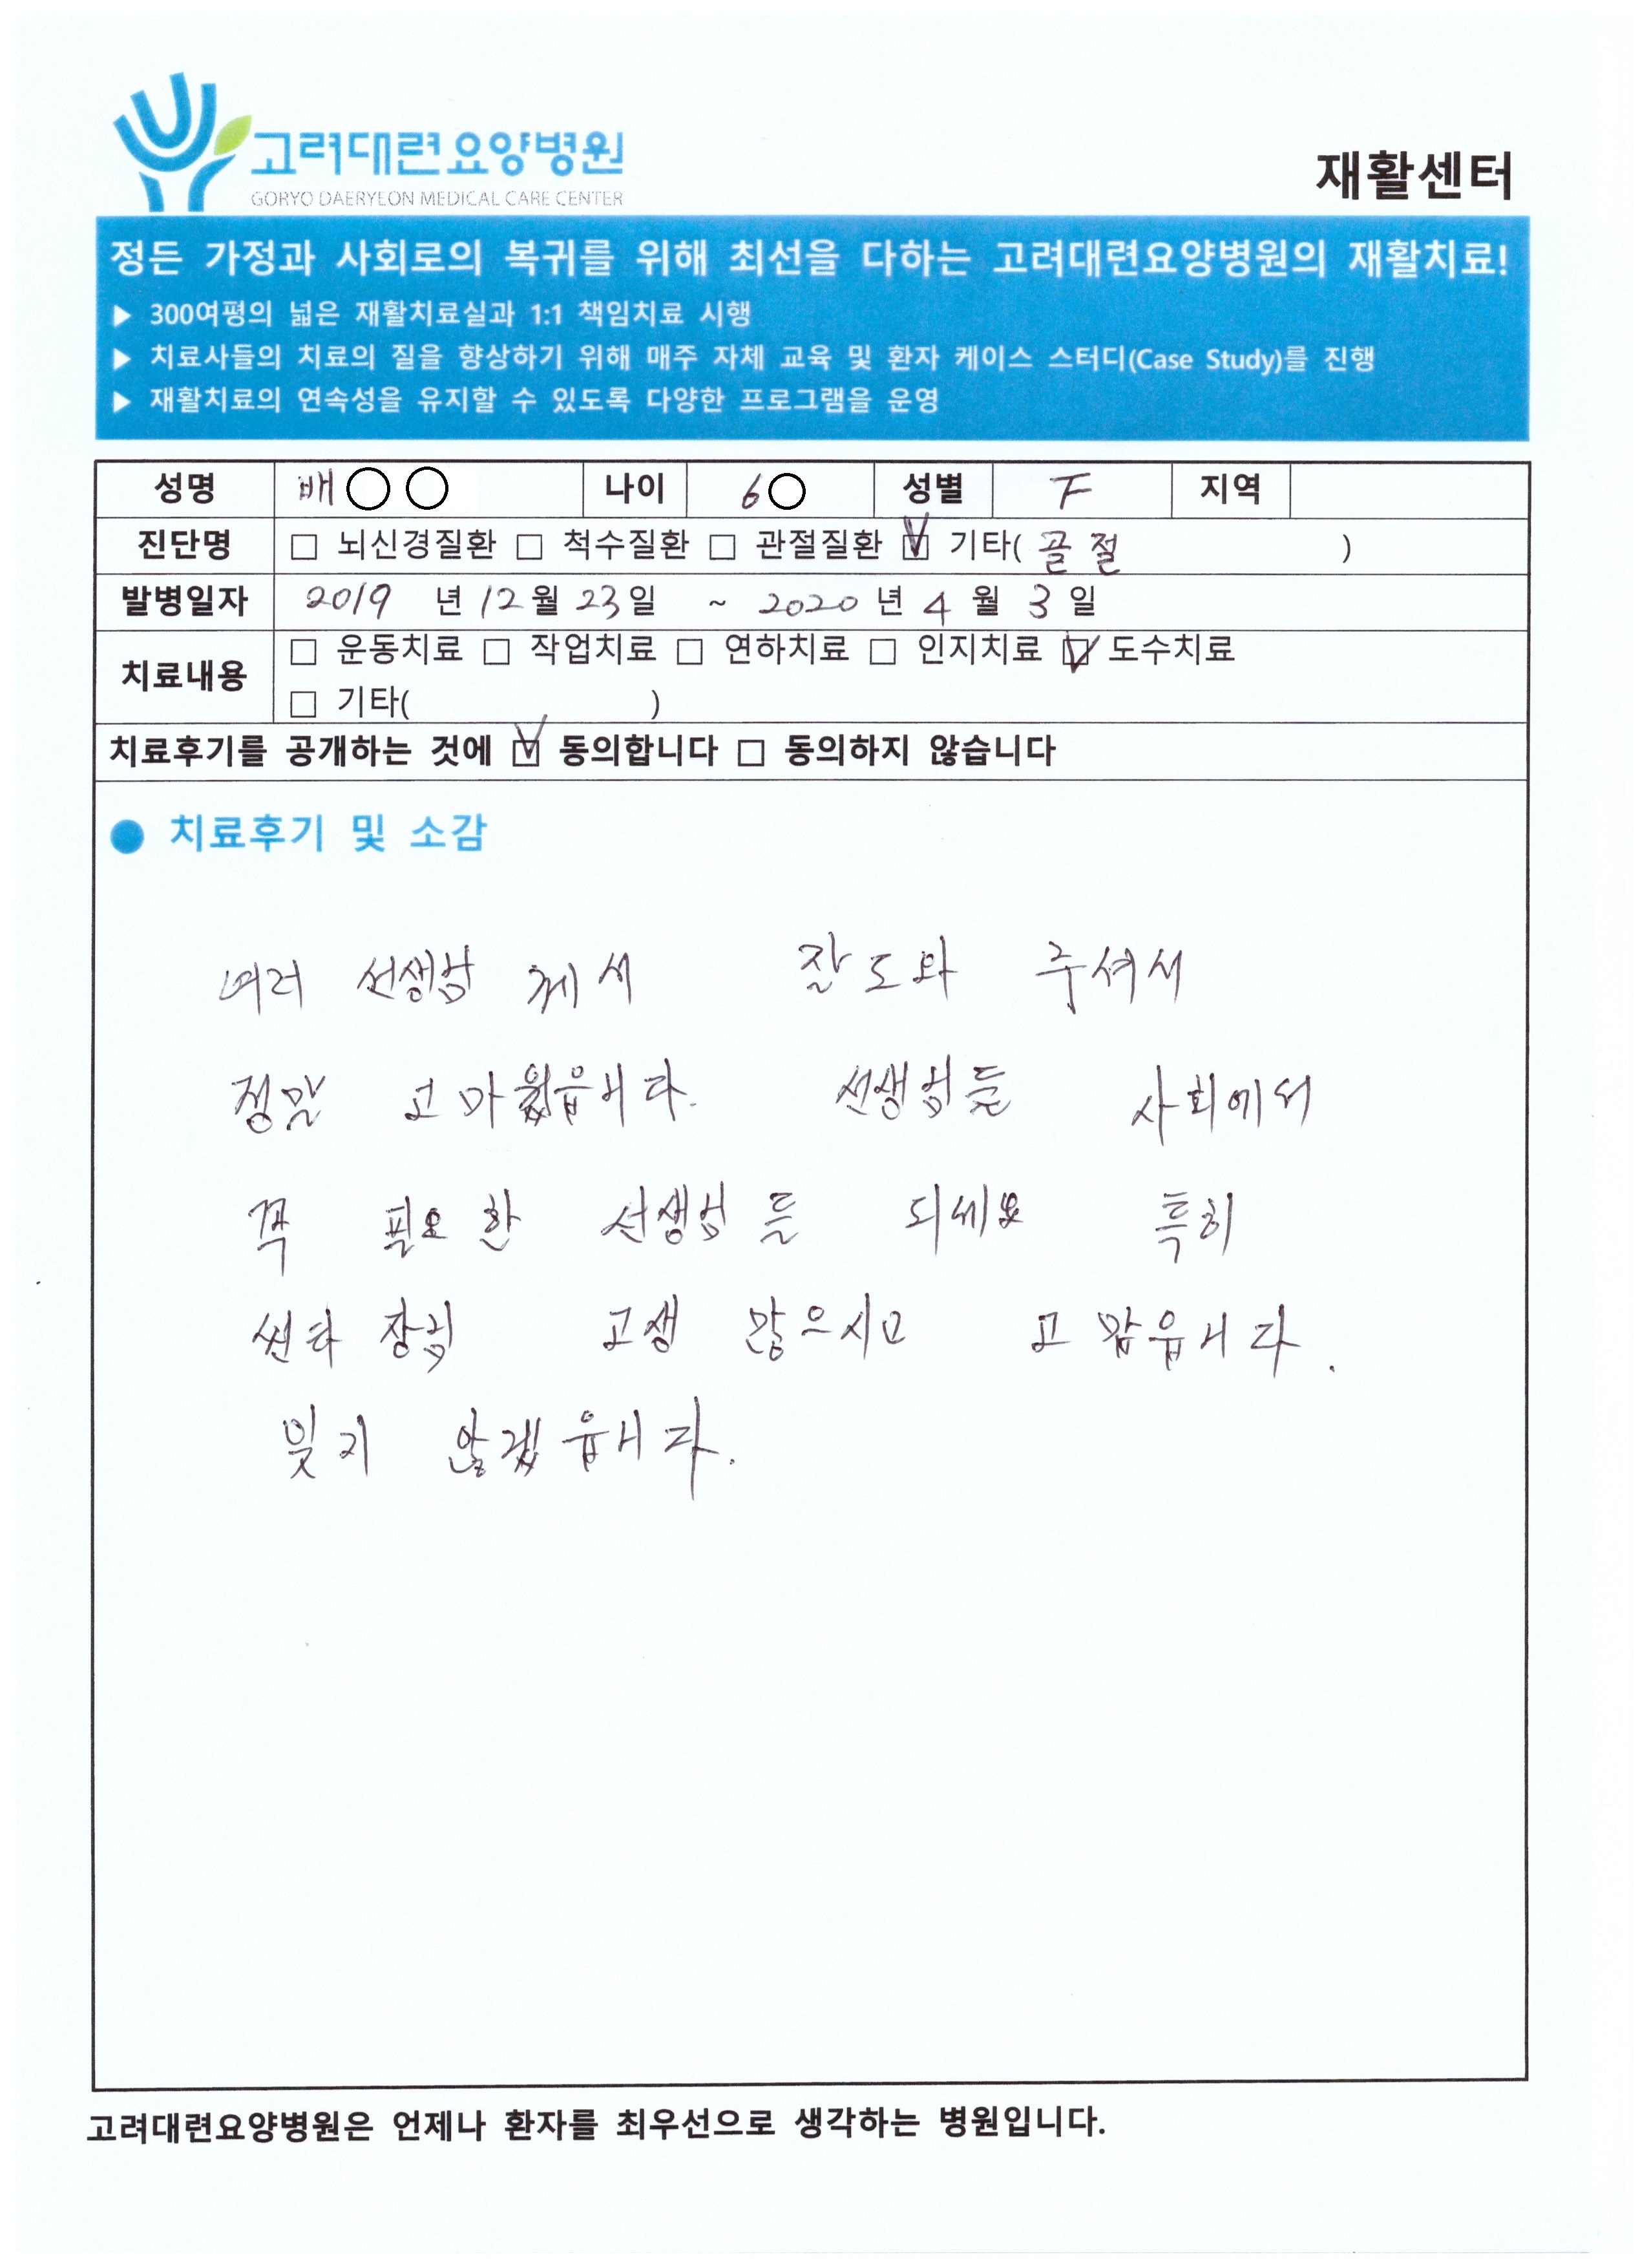 고려대련요양병원
GORYO DAERYEON MEDICAL CARE CENTER
재활센터
정든 가정과 사회로의 복귀를 위해 최선을 다하는 고려대련요양병원의 재활치료!
▶ 300여평의 넓은 재활치료실과 1:1 책임치료 시행
▶ 치료사들의 치료의 질을 향상하기 위해 매주 자체 교육 및 환자 케이스 스터디(Case Study)를 진행
▶ 재활치료의 연속성을 유지할 수 있도록 다양한 프로그램을 운영
성명 배○○ 나이 6○ 성별 F 지역
진단명 □ 뇌신경질환 □ 척수질환 □ 관절질환 ☑ 기타( 골절 )
발병일자 2019 년 12월 23일 ~ 2020 년 4 월 3 일
치료내용 □ 운동치료 □ 작업치료 □ 연하치료 □ 인지치료 ☑ 도수치료
□ 기타( )
치료후기를 공개하는 것에 ☑ 동의합니다 □ 동의하지 않습니다
● 치료후기 및 소감
여러 선생님 께서 잘 도와 주셔서
정말 고마웠읍니다. 선생님들 사회에서
꼭 필요한 선생님들 되세요 특히
쎈타장님 고생 많으시고 고맙읍니다.
잊지 않겠읍니다.
고려대련요양병원은 언제나 환자를 최우선으로 생각하는 병원입니다.